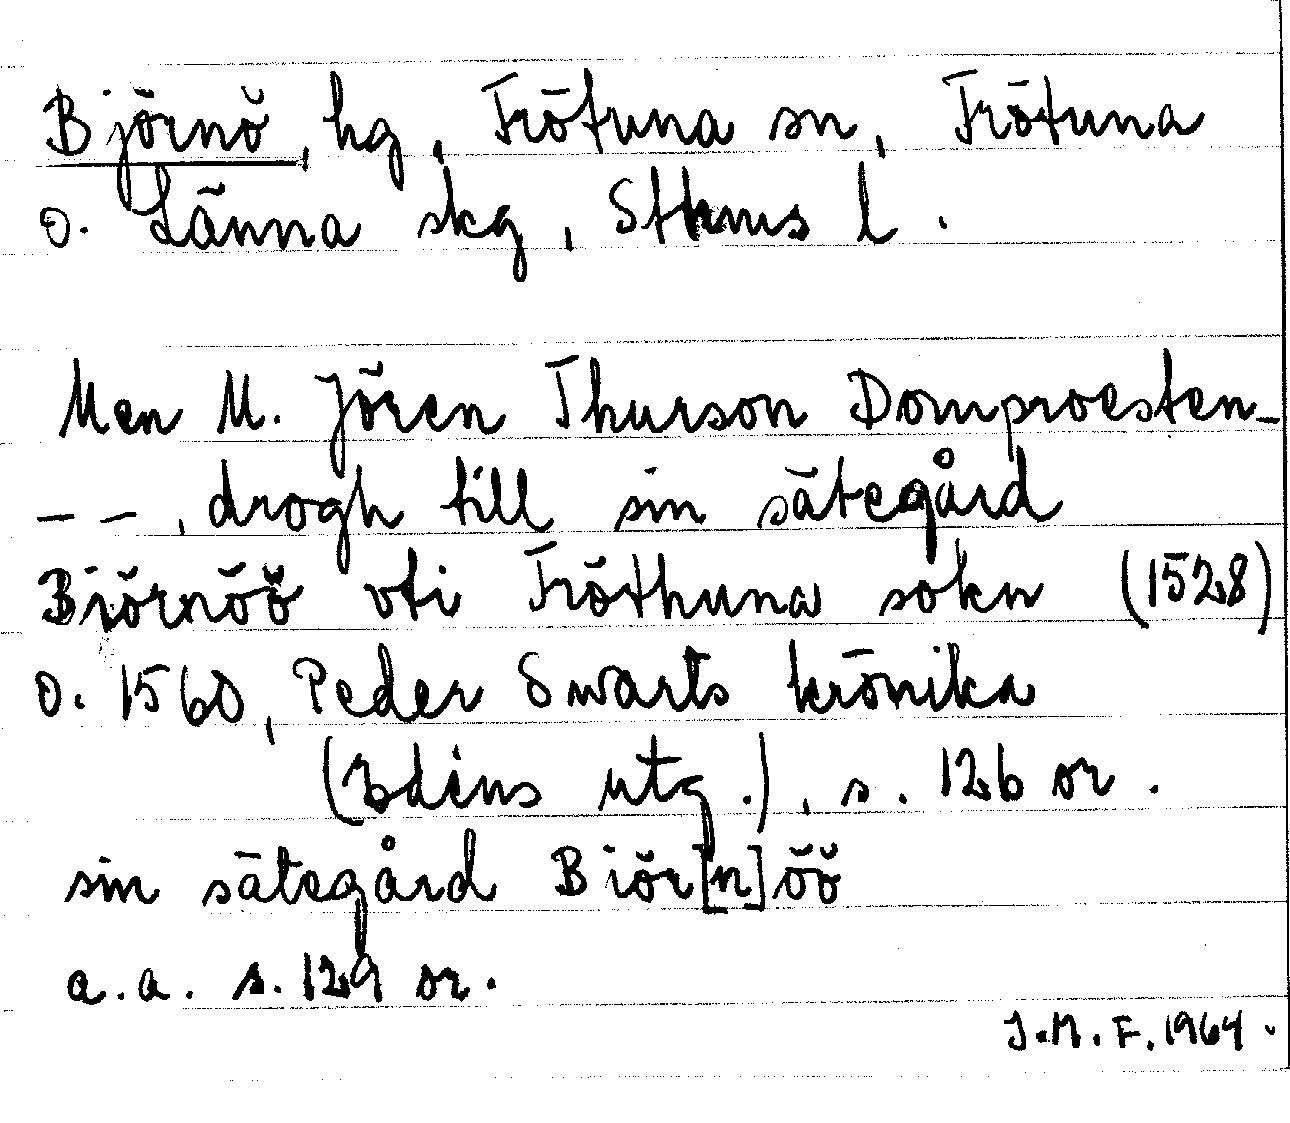 Björnö, hg, Frötuna sn, Frötuna
o. Länna skg, Sthms l.
Men M. Jören Thurson Domproesten _
_ _, drogh till sin sätegård
Biörnöö vti Fröthuna sokn (1528)
o. 1560, Peder Swarts krönika
(Edéns utg.), s. 126 or.
sin sätegård Biör[n]öö
a.a. s. 129 or.
J.M.F. 1964.